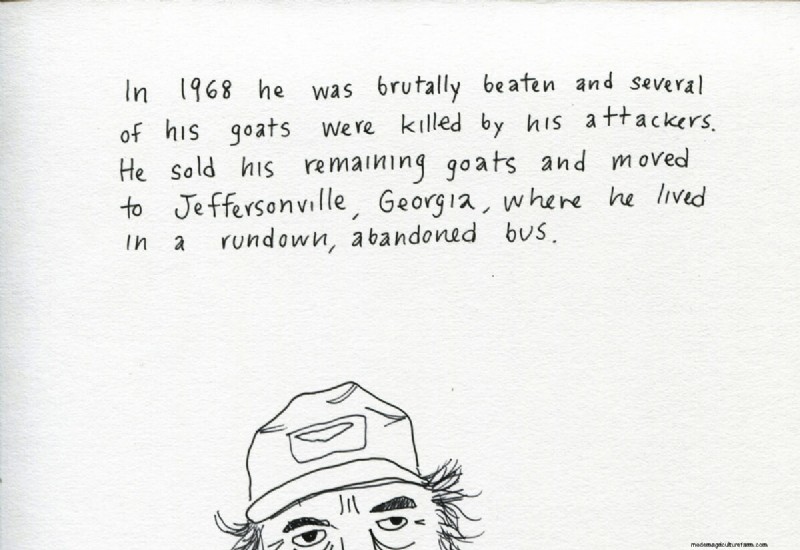 In 1968 he was brutally beaten and several
of his goats were killed by his attackers.
He sold his remaining goats and moved
to Jeffersonville, Georgia, where he lived
in a rundown, abandoned bus.